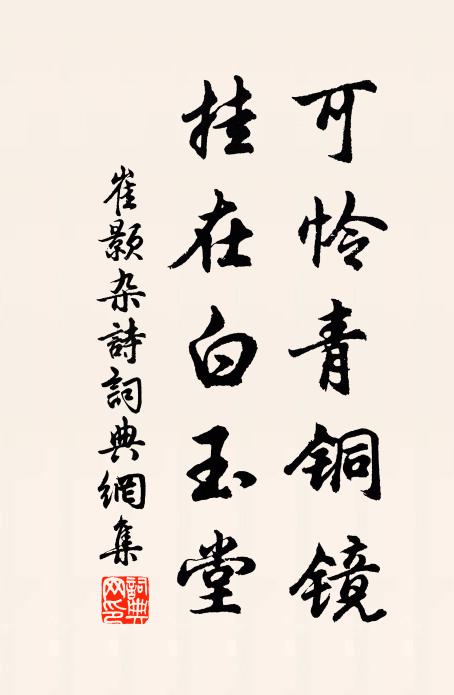 可怜青铜镜
挂在白玉堂
崔颢杂詩詞典網集
詞典網印